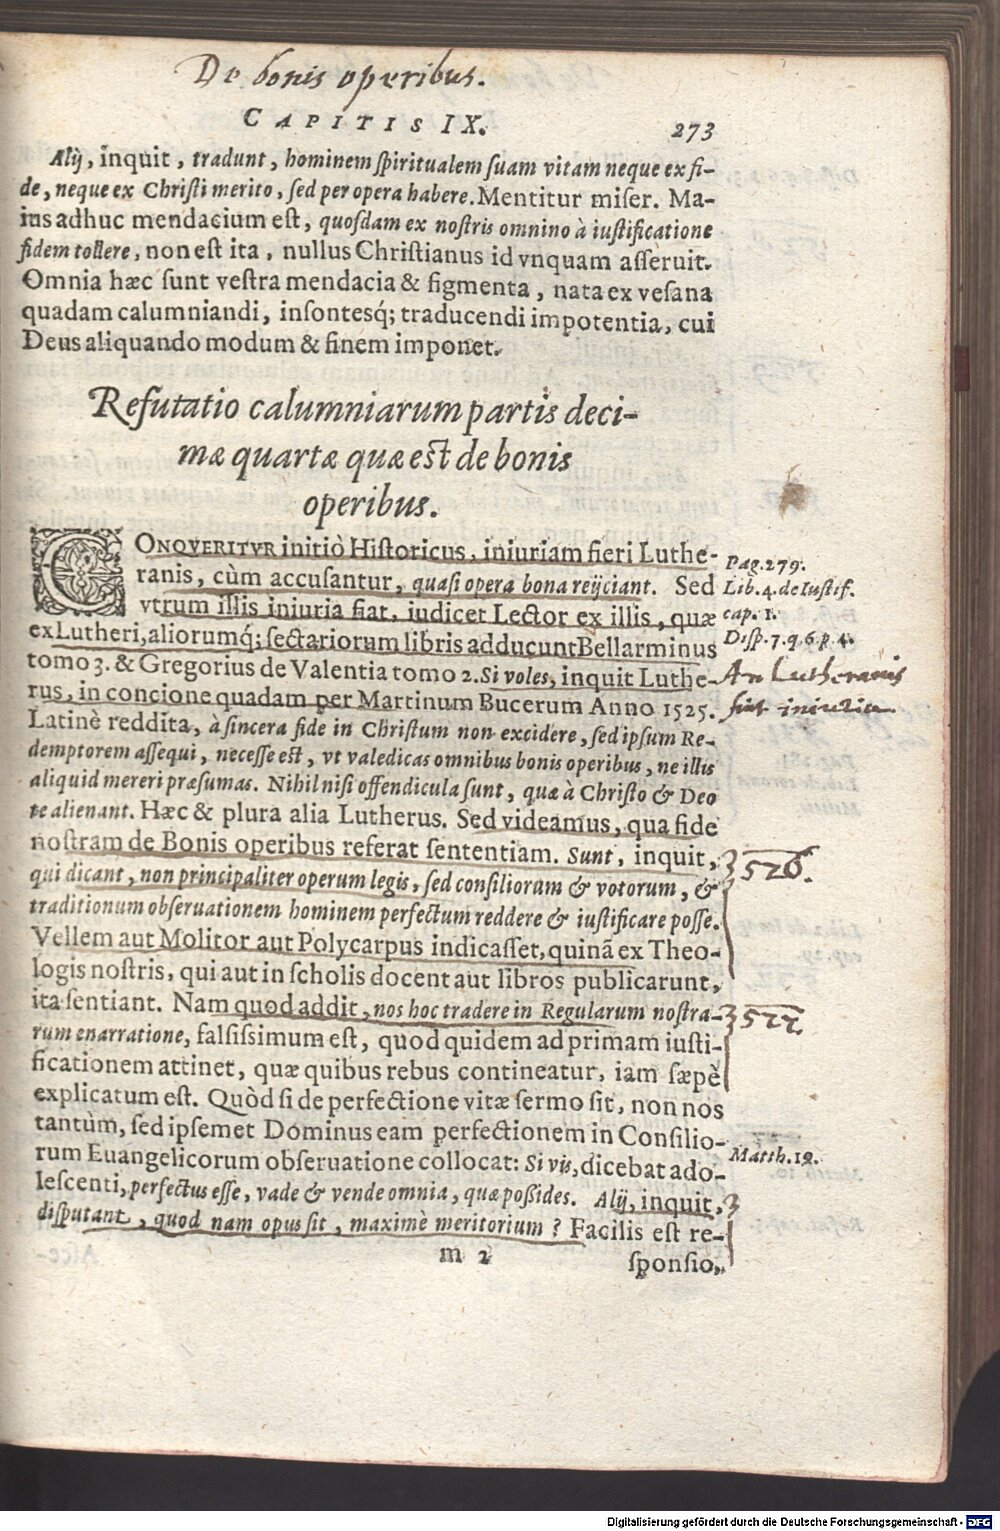 De bonis operibus.
CAPITIS IX. 273
Alij, inquit, tradunt, hominem spiritualem suam vitam neque ex fi-
de, neque ex Christi merito, sed per opera habere. Mentitur miser. Ma-
ius adhuc mendacium est, quosdam ex nostris omnino à iustificatione
fidem tollere, non est ita, nullus Christianus id vnquam asseruit.
Omnia hæc sunt vestra mendacia & figmenta, nata ex vesana
quadam calumniandi, insontesq́; traducendi impotentia, cui
Deus aliquando modum & finem imponet.
Refutatio calumniarum partis deci-
mæ quartæ quæ est de bonis
operibus.
CONQVERITVR initiò Historicus, iniuriam fieri Luthe-
ranis, cùm accusantur, quasi opera bona reijciant. Sed
vtrum illis iniuria fiat, iudicet Lector ex illis, quæ
ex Lutheri, aliorumq́; sectariorum libris adducunt Bellarminus
tomo 3. & Gregorius de Valentia tomo 2. Si voles, inquit Luthe-
rus, in concione quadam per Martinum Bucerum Anno 1525.
Latinè reddita, à sincera fide in Christum non excidere, sed ipsum Re-
demptorem assequi, necesse est, vt valedicas omnibus bonis operibus, ne illis
aliquid mereri præsumas. Nihil nisi offendicula sunt, quæ à Christo & Deo
te alienant. Hæc & plura alia Lutherus. Sed videamus, qua fide
nostram de Bonis operibus referat sententiam. Sunt, inquit,
qui dicant, non principaliter operum legis, sed consiliorum & votorum, &
traditionum obseruationem hominem perfectum reddere & iustificare posse.
Vellem aut Molitor aut Polycarpus indicasset, quinã ex Theo-
logis nostris, qui aut in scholis docent aut libros publicarunt,
ita sentiant. Nam quod addit, nos hoc tradere in Regularum nostra-
rum enarratione, falsissimum est, quod quidem ad primam iusti-
ficationem attinet, quæ quibus rebus contineatur, iam sæpè
explicatum est. Quòd si de perfectione vitæ sermo sit, non nos
tantùm, sed ipsemet Dominus eam perfectionem in Consilio-
rum Euangelicorum obseruatione collocat: Si vis, dicebat ado-
lescenti, perfectus esse, vade & vende omnia, quæ possides. Alij, inquit,
disputant, quod nam opus sit, maximè meritorium? Facilis est re-
m 2 sponsio,
Pag. 279.
Lib. 4. de Iustif.
cap. 1.
Disp. 7. q. 6. p. 4.
An Lutheranis
fiat iniuria
526.
527.
Matth. 19.
Digitalisierung gefördert durch die Deutsche Forschungsgemeinschaft - DFG